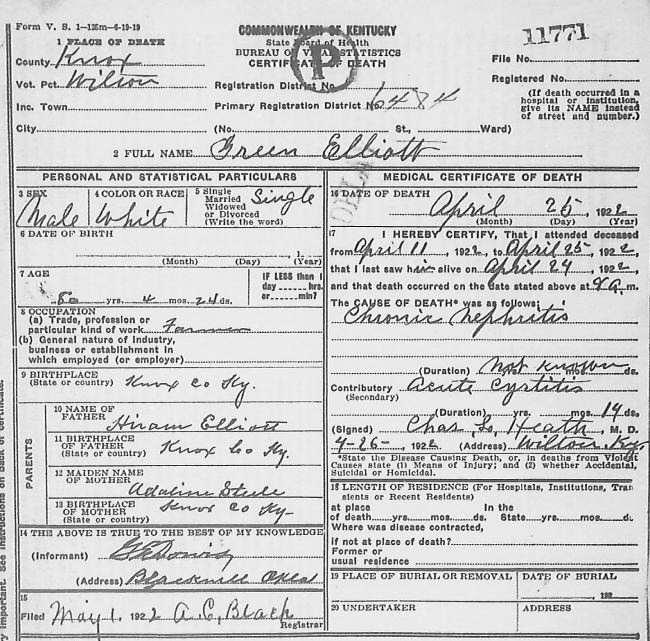 Form V. S. 1—125m—6-19-19
COMMONWEALTH OF KENTUCKY
State Board of Health
BUREAU OF VITAL STATISTICS
CERTIFICATE OF DEATH
P
11771
File No.
Registered No.
(If death occurred in a hospital or institution, give its NAME instead of street and number.)
1 PLACE OF DEATH
County Knox
Vot. Pct. Wilson
Inc. Town
City (No. St., Ward)
Registration District No.
Primary Registration District No. 6484
2 FULL NAME Green Elliott
PERSONAL AND STATISTICAL PARTICULARS
3 SEX Male
4 COLOR OR RACE White
5 Single Married Widowed or Divorced (Write the word) Single
6 DATE OF BIRTH
(Month) (Day) (Year)
7 AGE
80 yrs. 4 mos. 24 ds.
IF LESS than 1 day hrs. or min?
8 OCCUPATION
(a) Trade, profession or
particular kind of work Farmer
(b) General nature of industry,
business or establishment in
which employed (or employer)
9 BIRTHPLACE
(State or country) Knox Co Ky.
PARENTS
10 NAME OF FATHER Hiram Elliott
11 BIRTHPLACE OF FATHER (State or country) Knox Co Ky.
12 MAIDEN NAME OF MOTHER Adaline Steele
13 BIRTHPLACE OF MOTHER (State or country) Knox Co Ky
14 THE ABOVE IS TRUE TO THE BEST OF MY KNOWLEDGE
(Informant)
(Address) Okla
15
Filed May 1, 1922 A. C. Black
Registrar
MEDICAL CERTIFICATE OF DEATH
16 DATE OF DEATH
April 25, 1922
(Month) (Day) (Year)
17 I HEREBY CERTIFY, That I attended deceased
from April 11, 1922, to April 25, 1922,
that I last saw him alive on April 24, 1922,
and that death occurred on the date stated above at m.
The CAUSE OF DEATH* was as follows:
Chronic Nephritis
(Duration) Not Known yrs. mos. ds.
Contributory Acute Cystitis
(Secondary)
(Duration) yrs. mos. 14 ds.
(Signed) Chas. L. Heath, M. D.
4-26-, 1922 (Address) Wilton, Ky.
*State the Disease Causing Death, or, in deaths from Violent
Causes state (1) Means of Injury; and (2) whether Accidental,
Suicidal or Homicidal.
18 LENGTH OF RESIDENCE (For Hospitals, Institutions, Tran
sients or Recent Residents)
at place In the
of death yrs. mos. ds. State yrs. mos. d.
Where was disease contracted,
if not at place of death?
Former or
usual residence
19 PLACE OF BURIAL OR REMOVAL
DATE OF BURIAL
, 192
20 UNDERTAKER
ADDRESS